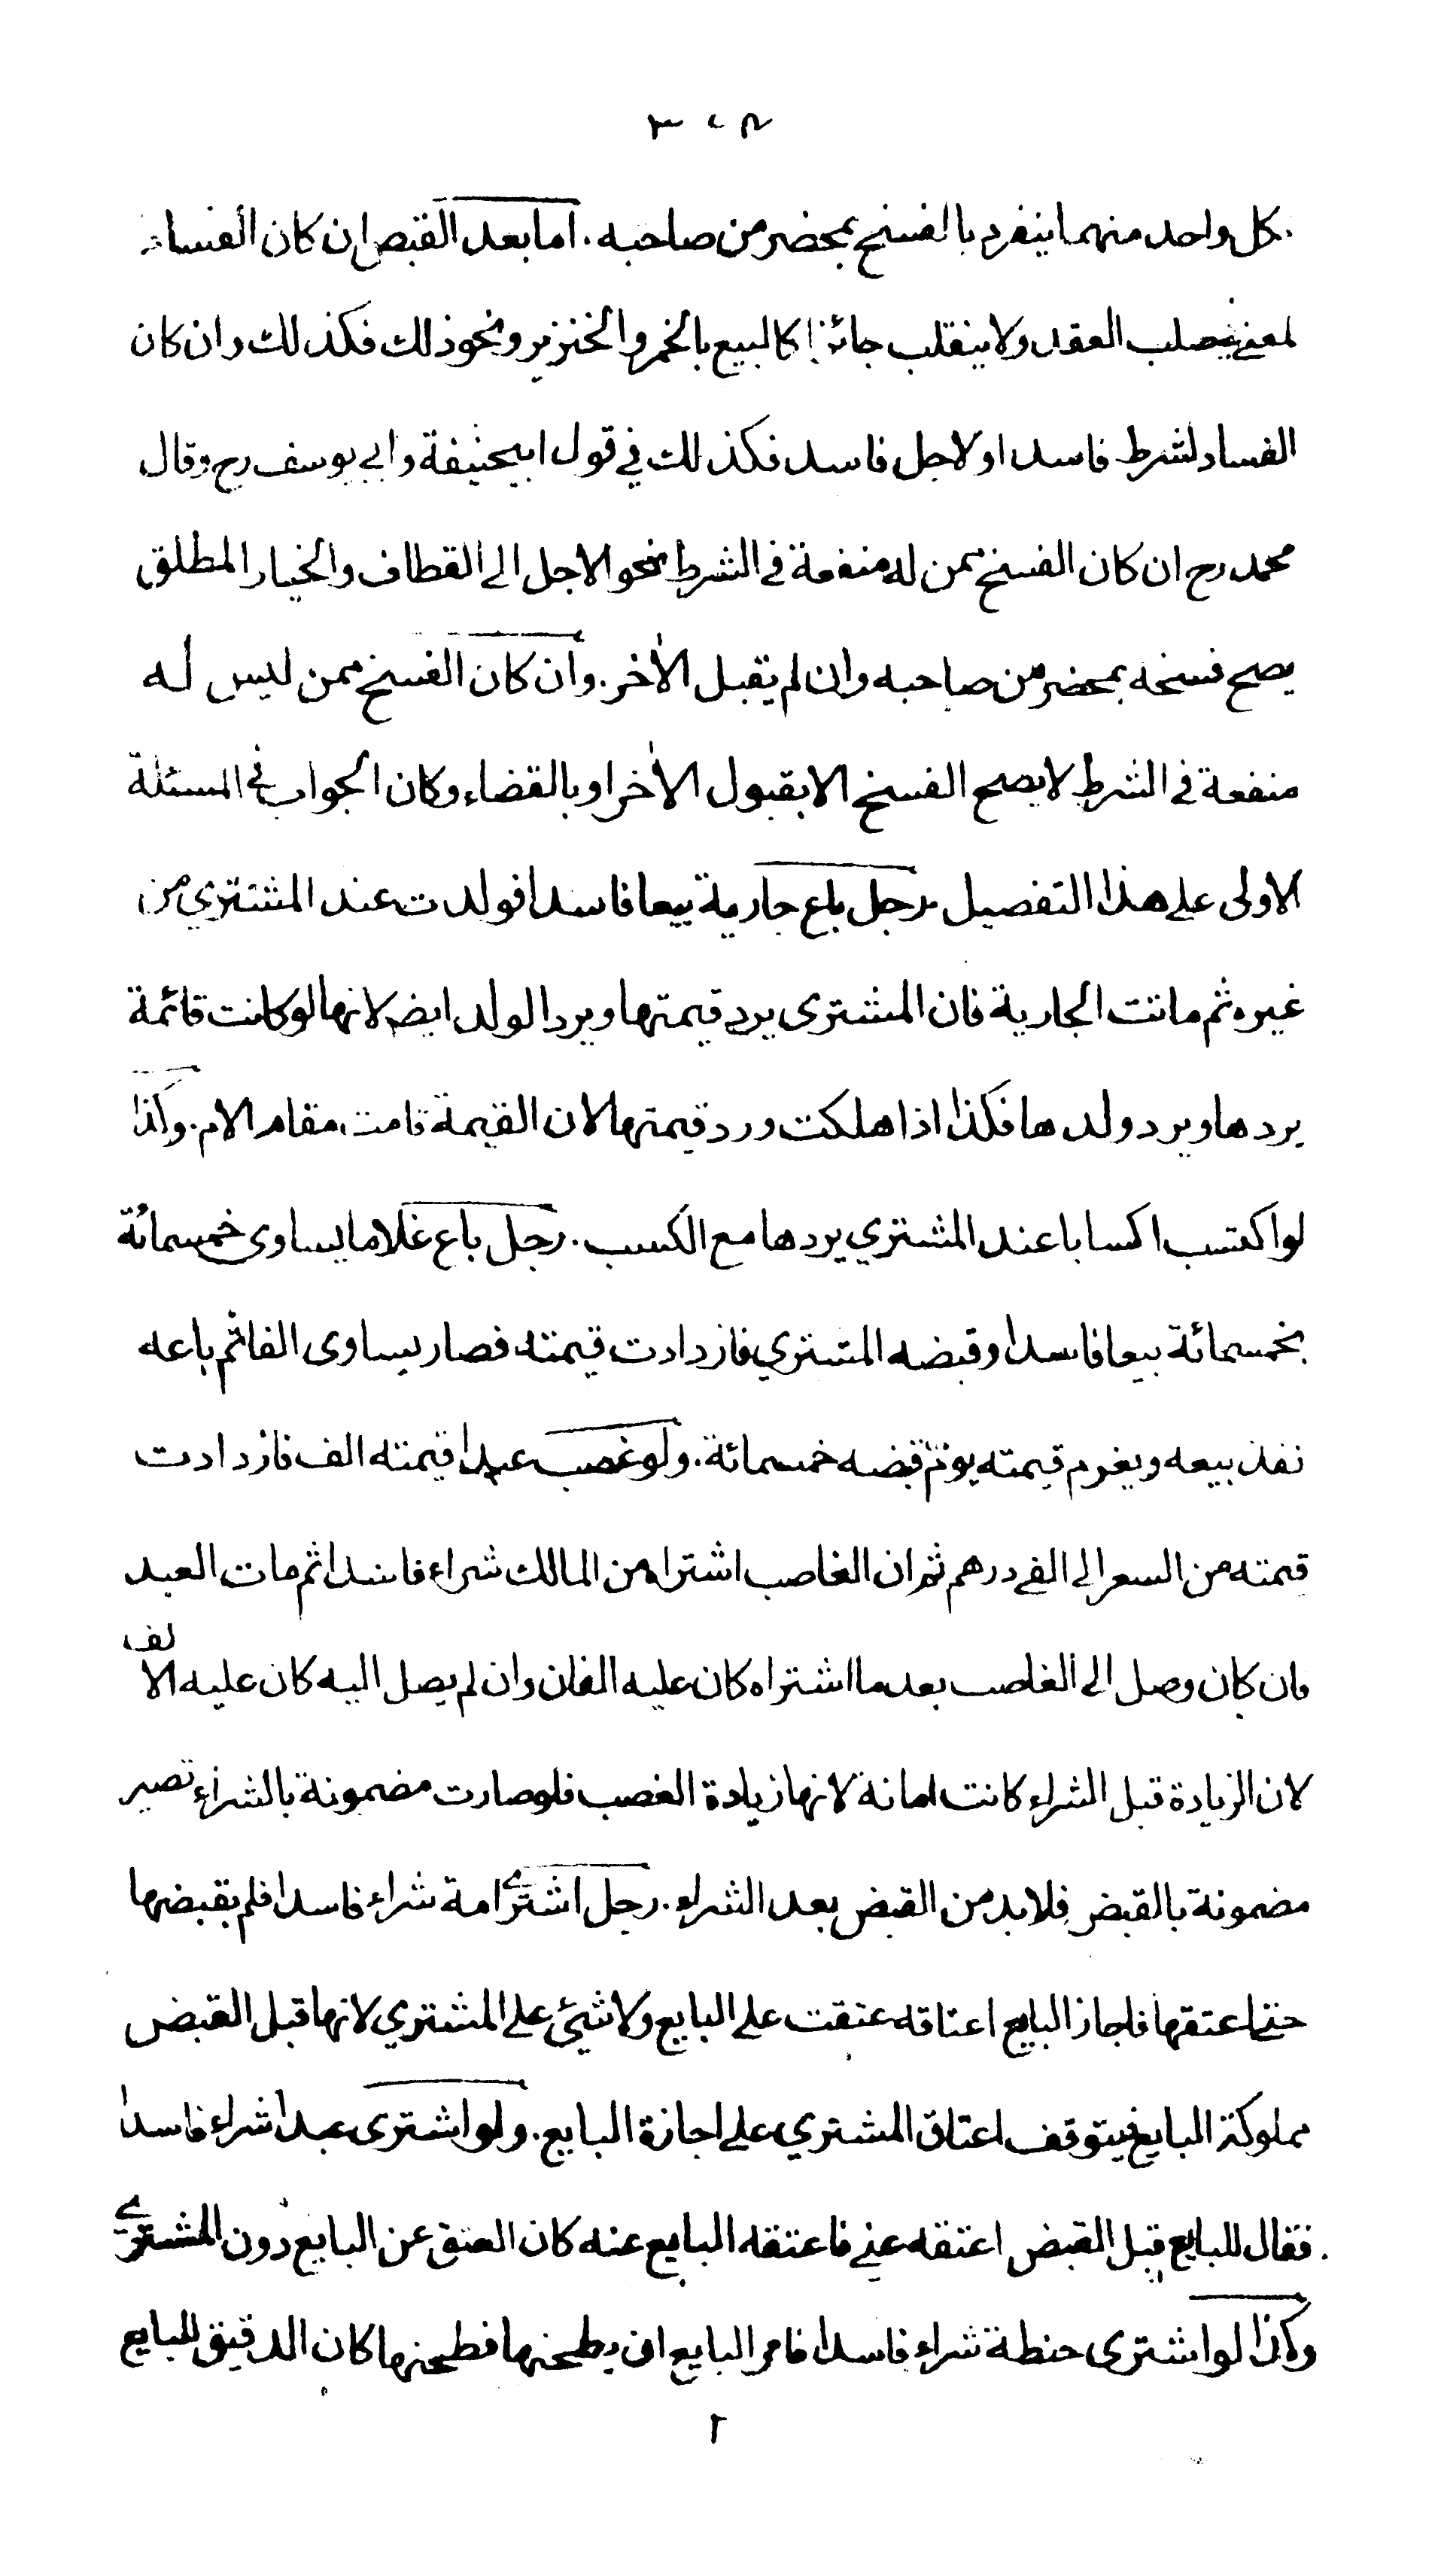 ٣٠٨
كل واحد منهما ينفرد بالفسخ بمحضر من صاحبه. اما بعد القبض ان كان الفساد
لمعنى في صلب العقد ولا ينقلب جائزا كالبيع بالخمر والخنزير ونحو ذلك فكذلك وان كان
الفساد لشرط فاسد او لاجل فاسد فكذلك في قول ابيحنيفة وابي يوسف رح وقال
محمد رح ان كان الفسخ ممن له منفعة في الشرط نحو الاجل الى القطاف والخيار المطلق
يصح فسخه بمحضر من صاحبه وان لم يقبل الاخر. وان كان الفسخ ممن ليس له
منفعة في الشرط لا يصح الفسخ الا بقبول الاخر او بالقضاء وكان الجواب في المسئلة
الاولى على هذا التفصيل رجل باع جارية بيعا فاسدا فولدت عند المشتري من
غيره ثم ماتت الجارية فان المشترى يرد قيمتها ويرد الولد ايض لانها لو كانت قائمة
يردها ويرد ولدها فكذا اذا هلكت ورد قيمتها لان القيمة قامت مقام الام. وكذا
لو اكتسب اكسابا عند المشتري يردها مع الكسب. رجل باع غلاما يساوى خمسمائة
بخمسمائة بيعا فاسدا وقبضه المشتري فازدادت قيمته فصار يساوى الفا ثم باعه
نفذ بيعه ويغرم قيمته يوم قبضه خمسمائة. ولو غصب عبدا قيمته الف فازدادت
قيمته من السعر الى الفي درهم ثم ان الغاصب اشتراه من المالك شراء فاسدا ثم مات العبد
فان كان وصل الى الغاصب بعد ما اشتراه كان عليه الفان وان لم يصل اليه كان عليه الالف
لان الزيادة قبل الشراء كانت امانة لانها زيادة الغصب فلو صارت مضمونة بالشراء تصير
مضمونة بالقبض فلا بد من القبض بعد الشراء. رجل اشترى امة شراء فاسدا فلم يقبضها
حتى اعتقها فاجاز البايع اعتاقه عتقت على البايع ولا شيئ على المشتري لانها قبل القبض
مملوكة البايع فيتوقف اعتاق المشتري على اجازة البايع. ولو اشترى عبدا شراء فاسدا
فقال للبايع قبل القبض اعتقه عني فاعتقه البايع عنه كان العتق عن البايع دون المشتري
وكذا لو اشترى حنطة شراء فاسدا فامر البايع ان يطحنها فطحنها كان الدقيق للبايع
٢